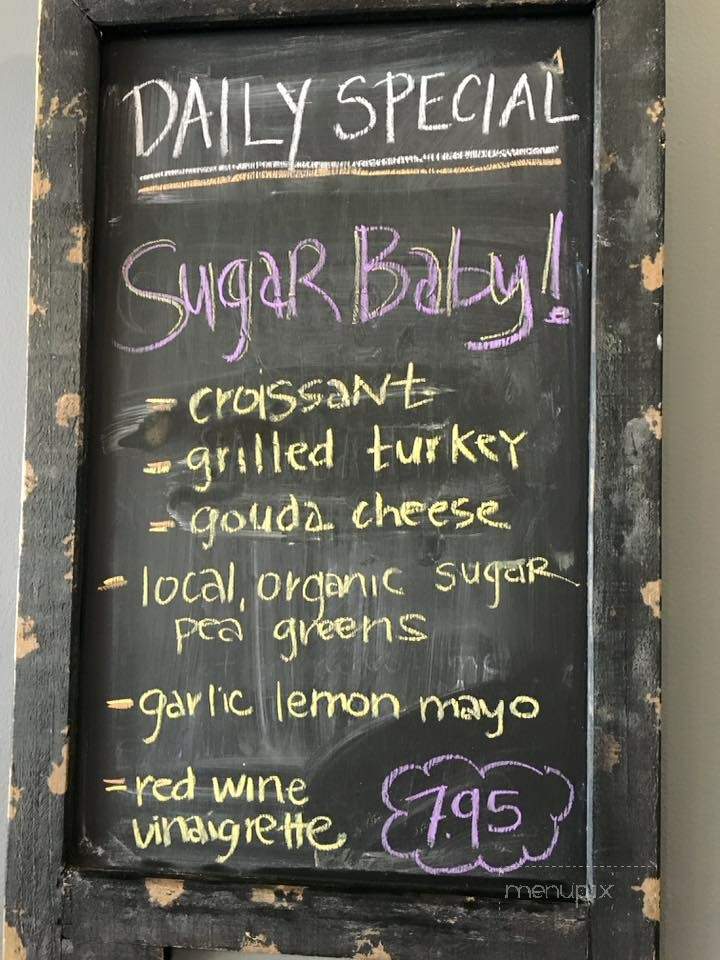 DAILY SPECIAL
Sugar Baby!
- croissant
- grilled turkey
- gouda cheese
- local, organic sugar
pea greens
- garlic lemon mayo
- red wine
vinaigrette
7.95
menupix